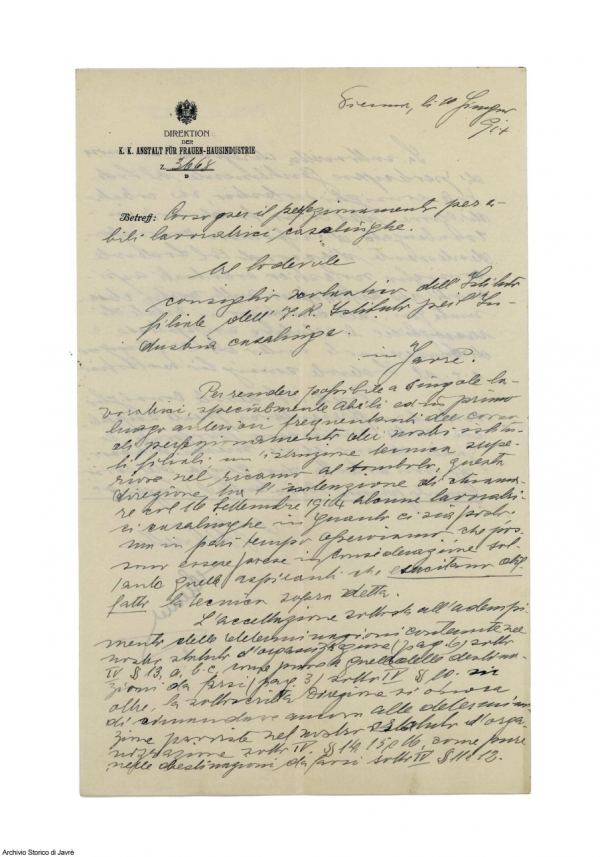 Vienna, li 10 Giugno
914
DIREKTION
DER
K. K. ANSTALT FÜR FRAUEN-HAUSINDUSTRIE
Z 3668
Betreff: Corso per il perfezionamento per a-
bili lavoratrici casalinghe.
Al lodevole
consiglio scolastico dell'Istituto
filiale dell'I. R. Istituto per l'In-
dustria casalinga
in Javrè.
Per rendere possibile a singole la-
voratrici, specialmente abili ed in primo
luogo anteriori frequentanti corso
di perfezionamento dei nostri istitu-
ti filiali un'istruzione tecnica supe-
riore nel ricamo al tombolo, questa
direzione ha l'intenzione di chiama-
re col 16 Settembre 1914 alcune lavoratri-
ci casalinghe in quanto ci sia
in pari tempo osserviamo che pos-
sono essere prese in considerazione sol-
tanto quelle aspiranti che
fatto la tecnica sopra detta.
L'accettazione sottostà all'adempi-
mento delle determinazioni contenute nel
nostro statuto d'organizzazione (pag. 6) sotto
IV § 13, a, b, c, come pure a quelle delle destina-
zioni da farsi (pag. 3) sotto IV § 10. in
oltre, la sottoscritta Direzione si onora
di ancora alle determina-
zione previste nel nostro statuto d'orga-
nizzazione sotto IV. § 14, 15, e 16, come pure
nelle destinazioni da farsi sotto IV § 11 e 12.
Archivio Storico di Javrè